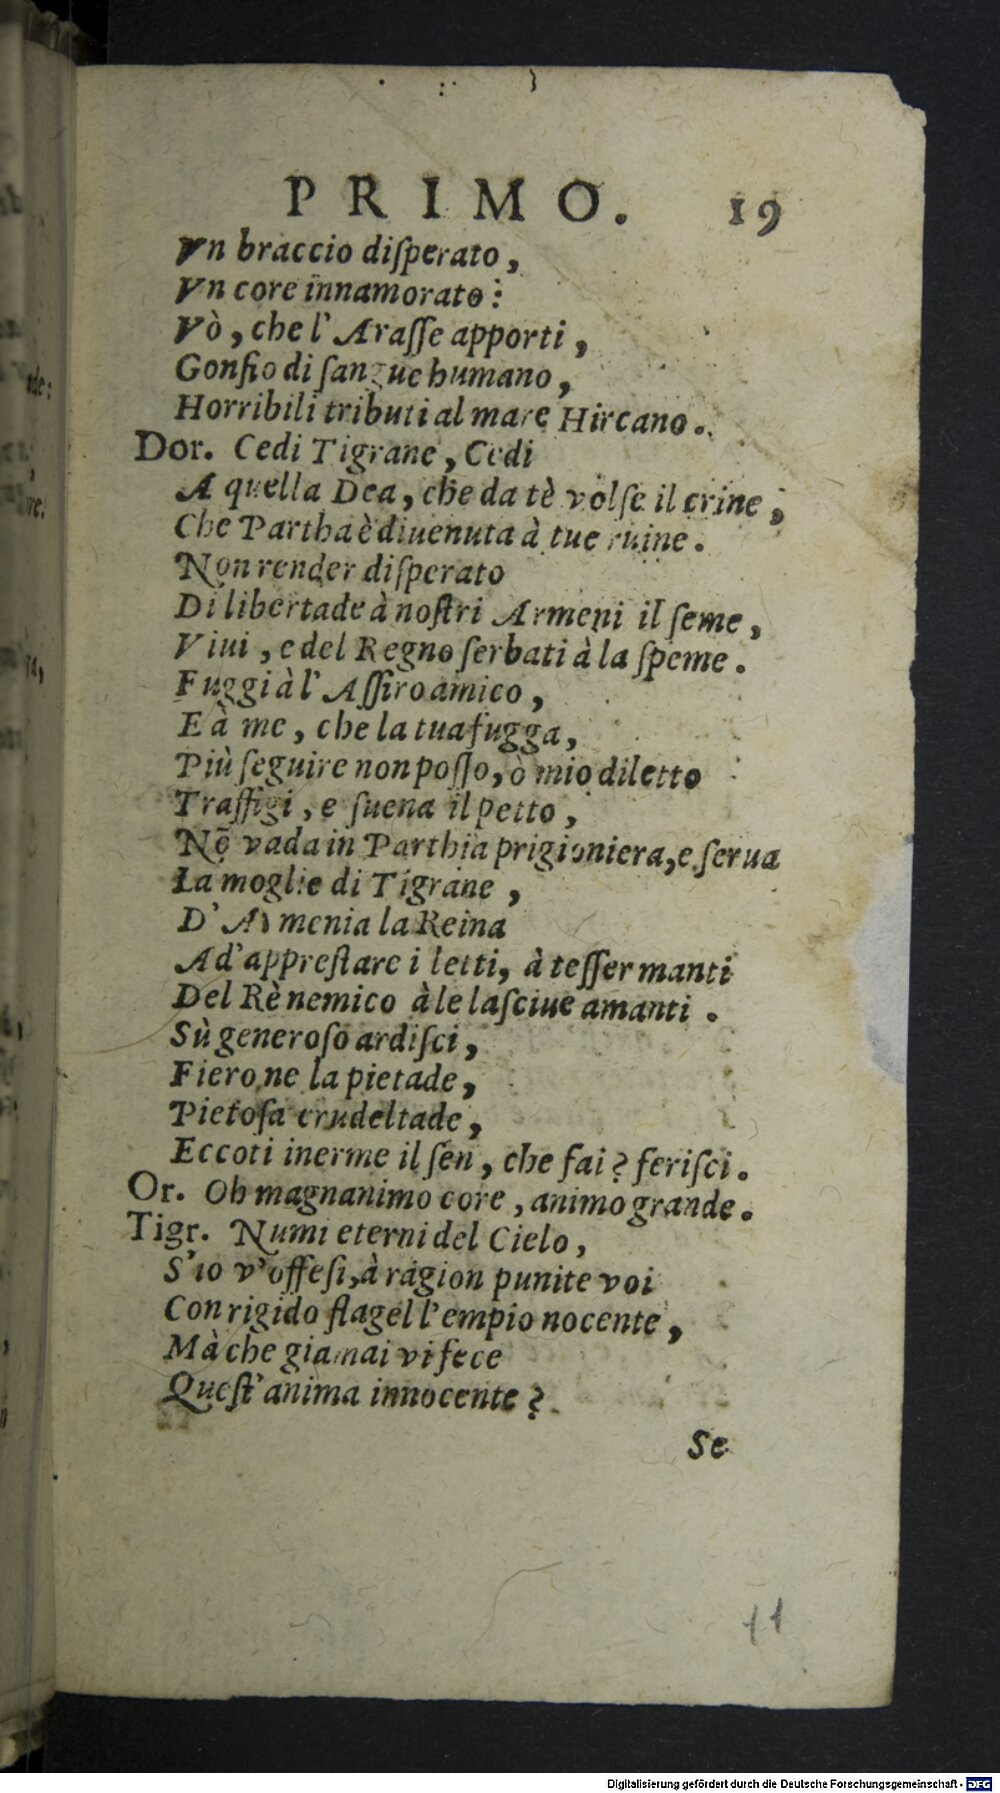 PRIMO. 19
Vn braccio diſperato,
Vn core innamorato:
Vò, che l'Araſſe apporti,
Gonfio di ſangue humano,
Horribili tributi al mare Hircano.
Dor. Cedi Tigrane, Cedi
A quella Dea, che da tè volſe il crine,
Che Partha è diuenuta à tue ruine.
Non render diſperato
Di libertade à noſtri Armeni il ſeme,
Viui, e del Regno ſerbati à la ſpeme.
Fuggi à l'Aſſiro amico,
E à me, che la tua fugga,
Più ſeguire non poſſo, ò mio diletto
Traffigi, e ſuena il petto,
Nõ vada in Parthia prigioniera, e ſerua
La moglie di Tigrane,
D'Armenia la Reina
Ad'appreſtare i letti, à teſſer manti
Del Rè nemico à le laſciue amanti.
Sù generoſo ardiſci,
Fiero ne la pietade,
Pietoſa crudeltade,
Eccoti inerme il ſen, che fai? feriſci.
Or. Oh magnanimo core, animo grande.
Tigr. Numi eterni del Cielo,
S'io v'offeſi, à ragion punite voi
Con rigido flagel l'empio nocente,
Mà che giamai vi fece
Queſt'anima innocente?
Se
11
Digitalisierung gefördert durch die Deutsche Forschungsgemeinschaft - DFG